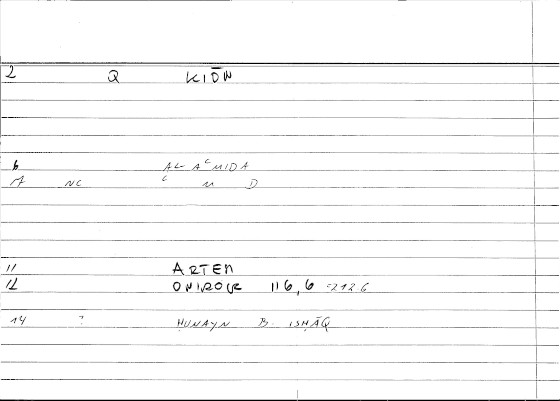 2 Q KIŌN
6 AL-AʿMIDA
7A NC ʿ M D
11 ARTEM
12 ONIROCR 116,6 =212 6
14 ? ḤUNAYN B. ISḤĀQ